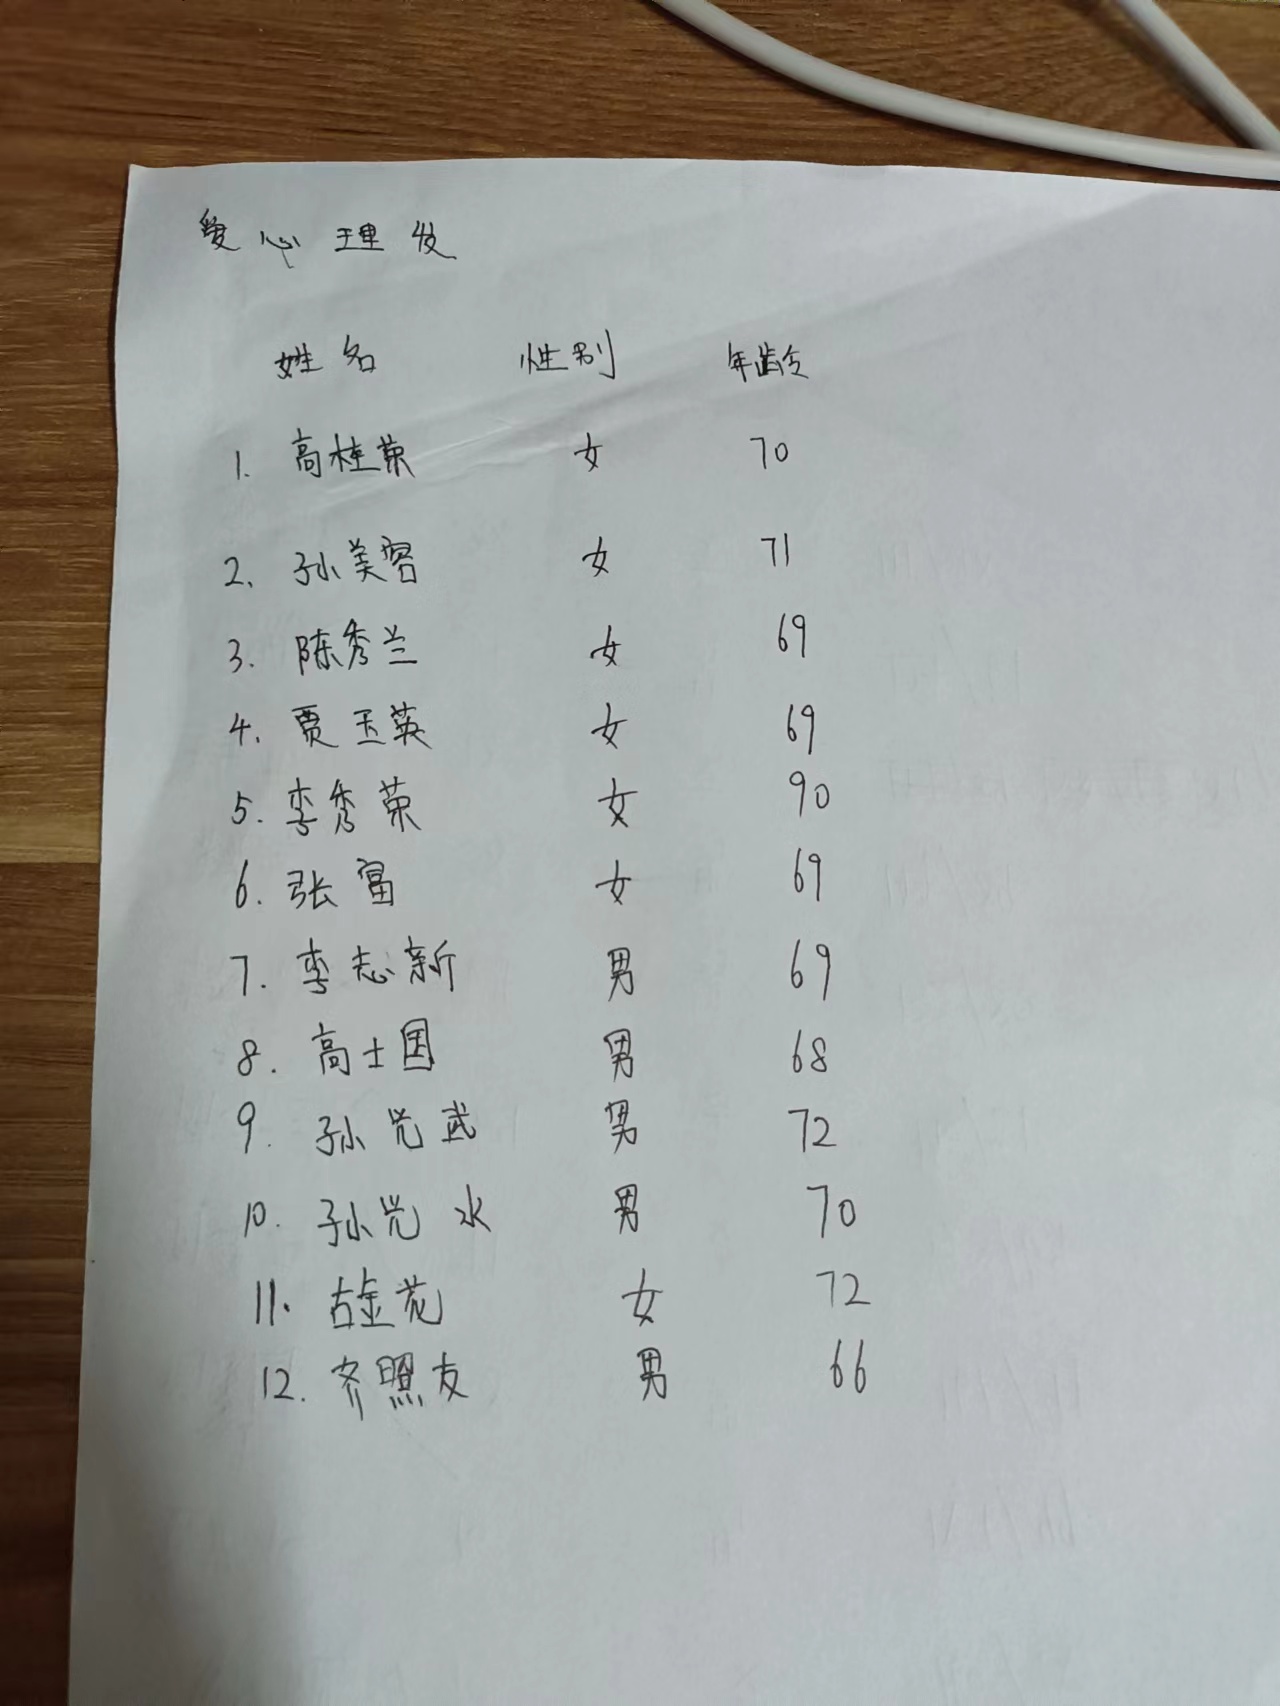 爱心理发
姓名 性别 年龄
1. 高桂荣 女 70
2. 孙美容 女 71
3. 陈秀兰 女 69
4. 贾玉英 女 69
5. 李秀荣 女 90
6. 张富 女 69
7. 李志新 男 69
8. 高士国 男 68
9. 孙光武 男 72
10. 孙光水 男 70
11. 古金花 女 72
12. 齐照友 男 66